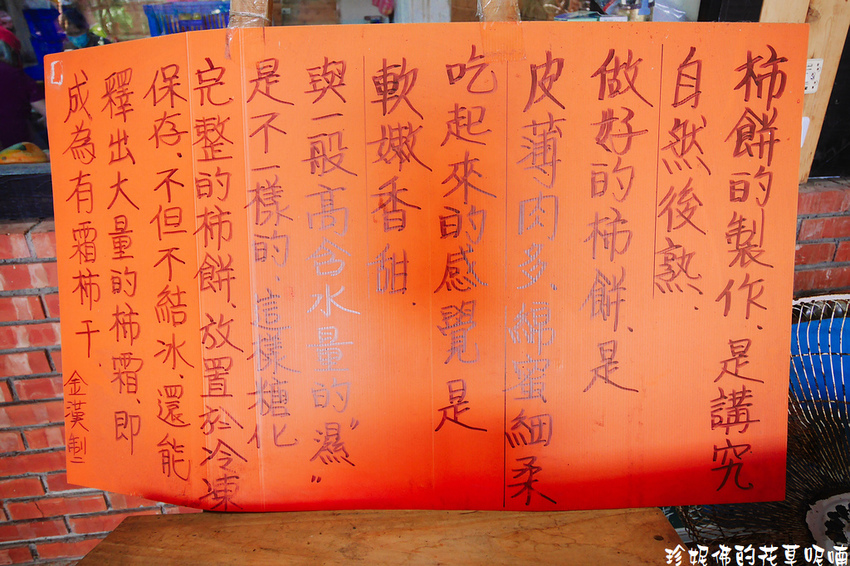 柿餅的製作、是講究
自然後熟、
做好的柿餅、是
皮薄肉多、綿蜜細柔
吃起來的感覺是
軟嫩香甜.
與一般高含水量的"濕"
是不一樣的、這樣糖化
完整的柿餅、放置於冷凍
保存、不但不結冰、還能
釋出大量的柿霜、即
成為有霜柿干、
金漢製
珍妮佛的花草呢喃